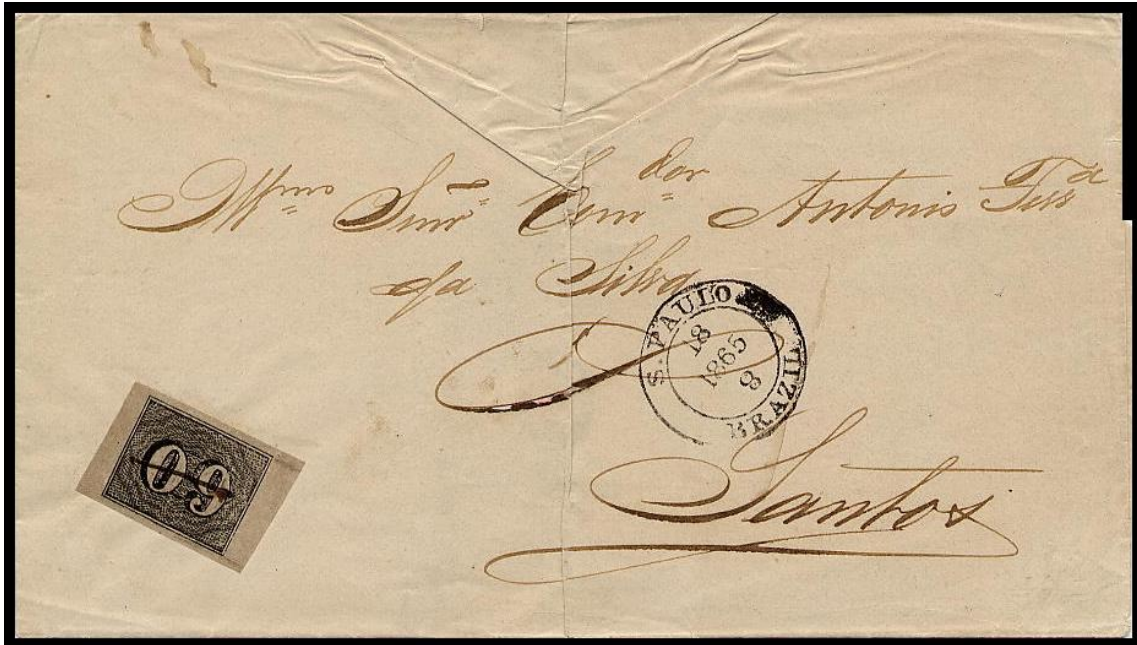 Illmo Snr. Comdor Antonio Ferra
da Silva
S. PAULO
18
1865
8
BRAZIL
Santos
60